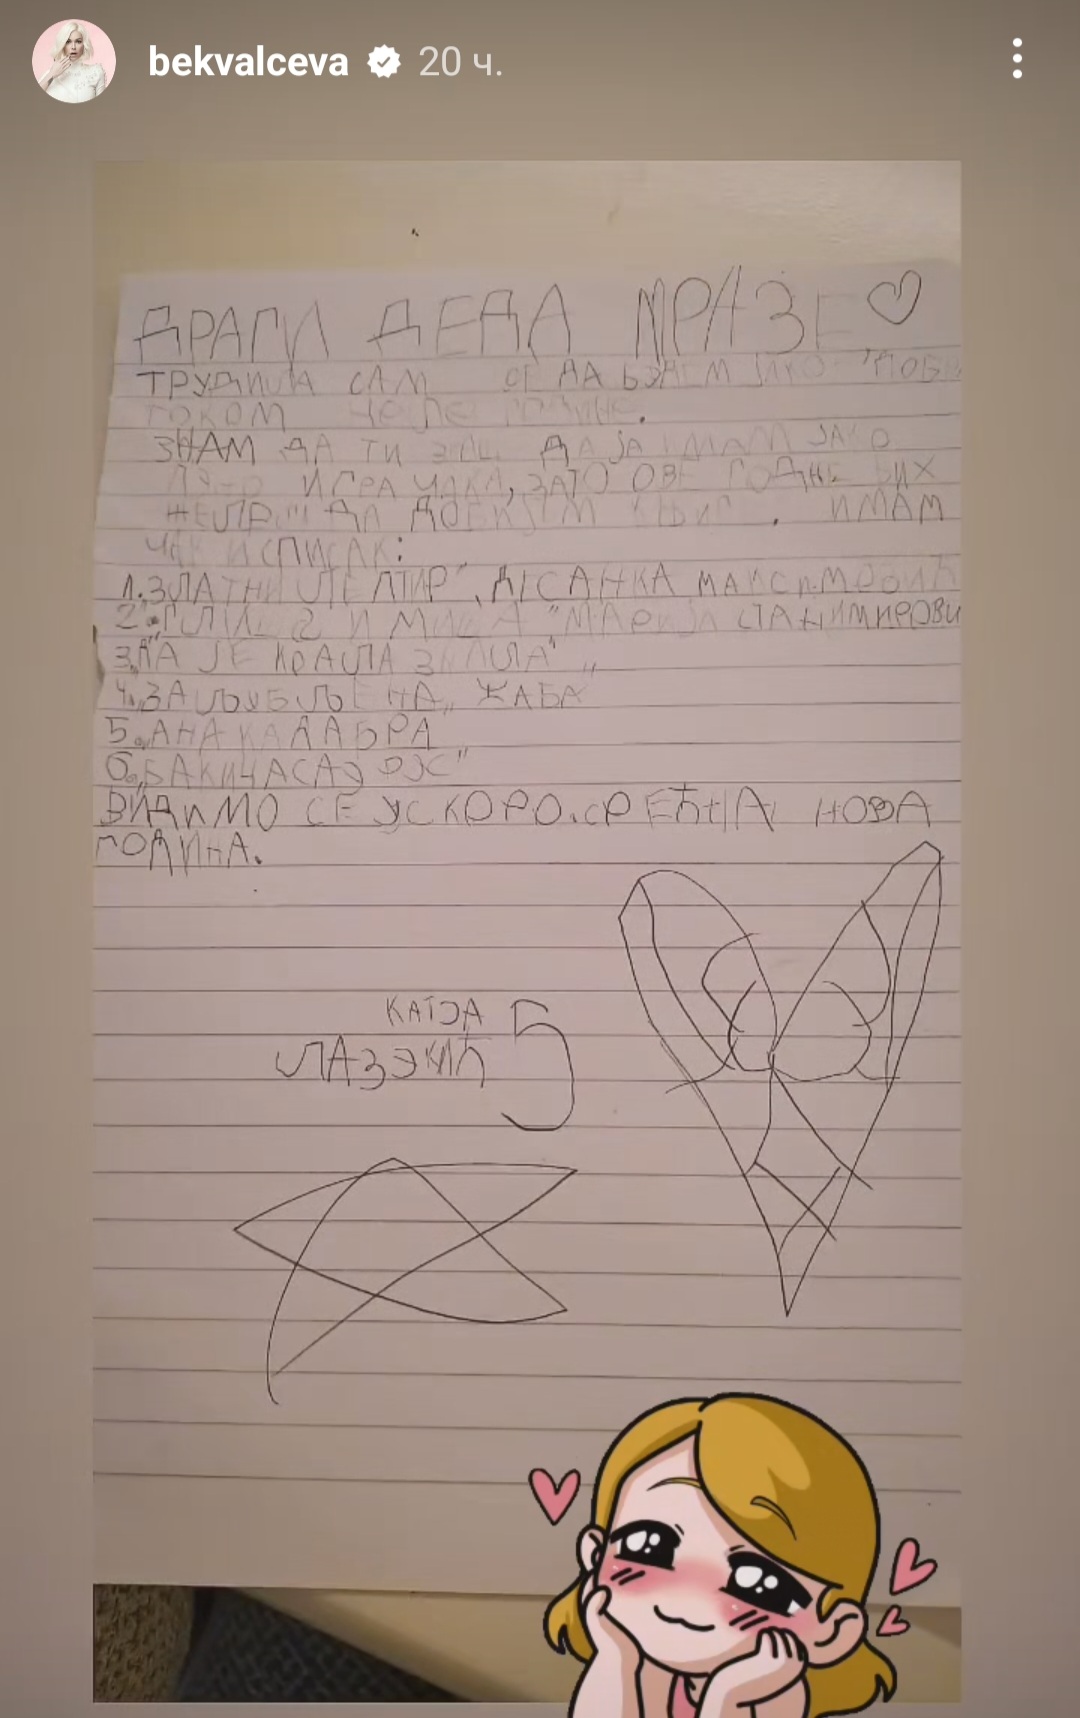 bekvalceva 20 ч.
ДРАГИ ДЕДА МРАЗЕ
ТРУДИЛА САМ СЕ ДА БУДЕМ ЈАКО ДОБ
ТОКОМ ЦЕЛЕ ГОДИНЕ.
ЗНАМ ДА ТИ ДА ЈА ИМАМ ЈАКО
ИГРАЧАКА, ЗАТО ОВЕ ГОДНЕ БИХ
ДА ДОБИЈЕМ . ИМАМ
ЧАК И СПИСАК:
1. ЗЛАТНИ ЛЕПТИР", ДІСАНКА МАКСИМОВИЋ
2." И "МАРИЈА СТАНИМИРОВИ
3. ЈЕ КРАЉА
4. „ЗАЉУБЉЕНА„ ЖАБА
5. „АНА КАДАБРА
6.„
ВИДИМО СЕ УСКОРО. СРЕЋНА НОВА
ГОДИНА.
КАТЈА 5
ЛАЗЭКИЋ